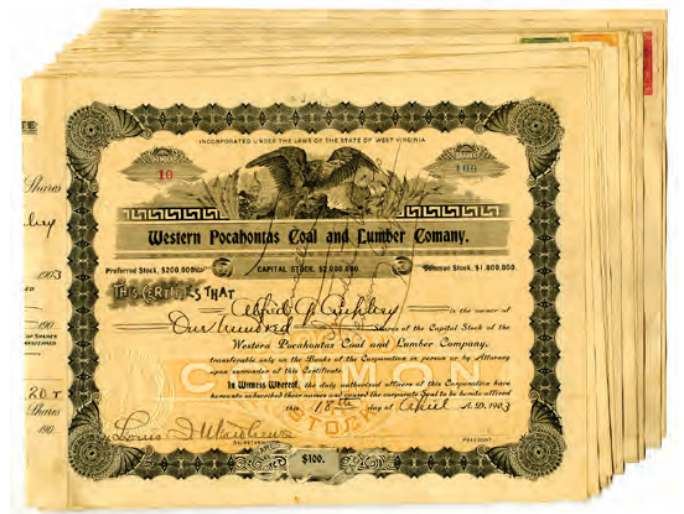 INCORPORATED UNDER THE LAWS OF THE STATE OF WEST VIRGINIA
NUMBER
SHARES
10
100
Western Pocahontas Coal and Lumber Comany.
Preferred Stock, $200,000
CAPITAL STOCK, $2,000,000.
Common Stock, $1,800,000.
THIS CERTIFIES THAT
Alfred
is the owner of
One Hundred
Shares of the Capital Stock of the
Western Pocahontas Coal and Lumber Company,
transferable only on the Books of the Corporation in person or by Attorney
upon surrender of this Certificate.
In Witness Whereof, the duly authorized officers of this Corporation have
hereunto subscribed their names and caused the corporate Seal to be hereto affixed
this 18th day of April A.D. 1903
COMMON
STOCK
Louis
SECRETARY
PRESIDENT
$100.
Shares
1903
190
OF SHARES
Shares
190